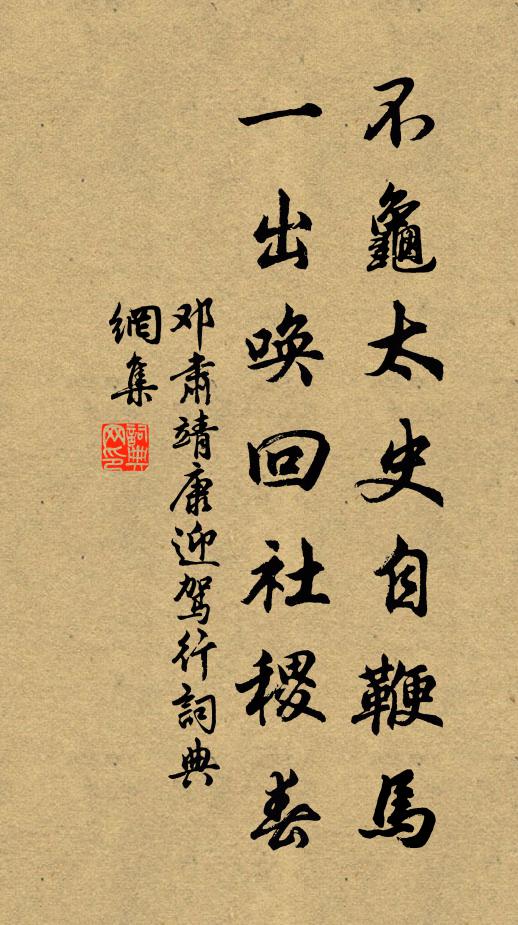 不龜太史自鞭馬
一出唤回社稷春
邓肃靖康迎驾行詞典
網集
詞典
网印